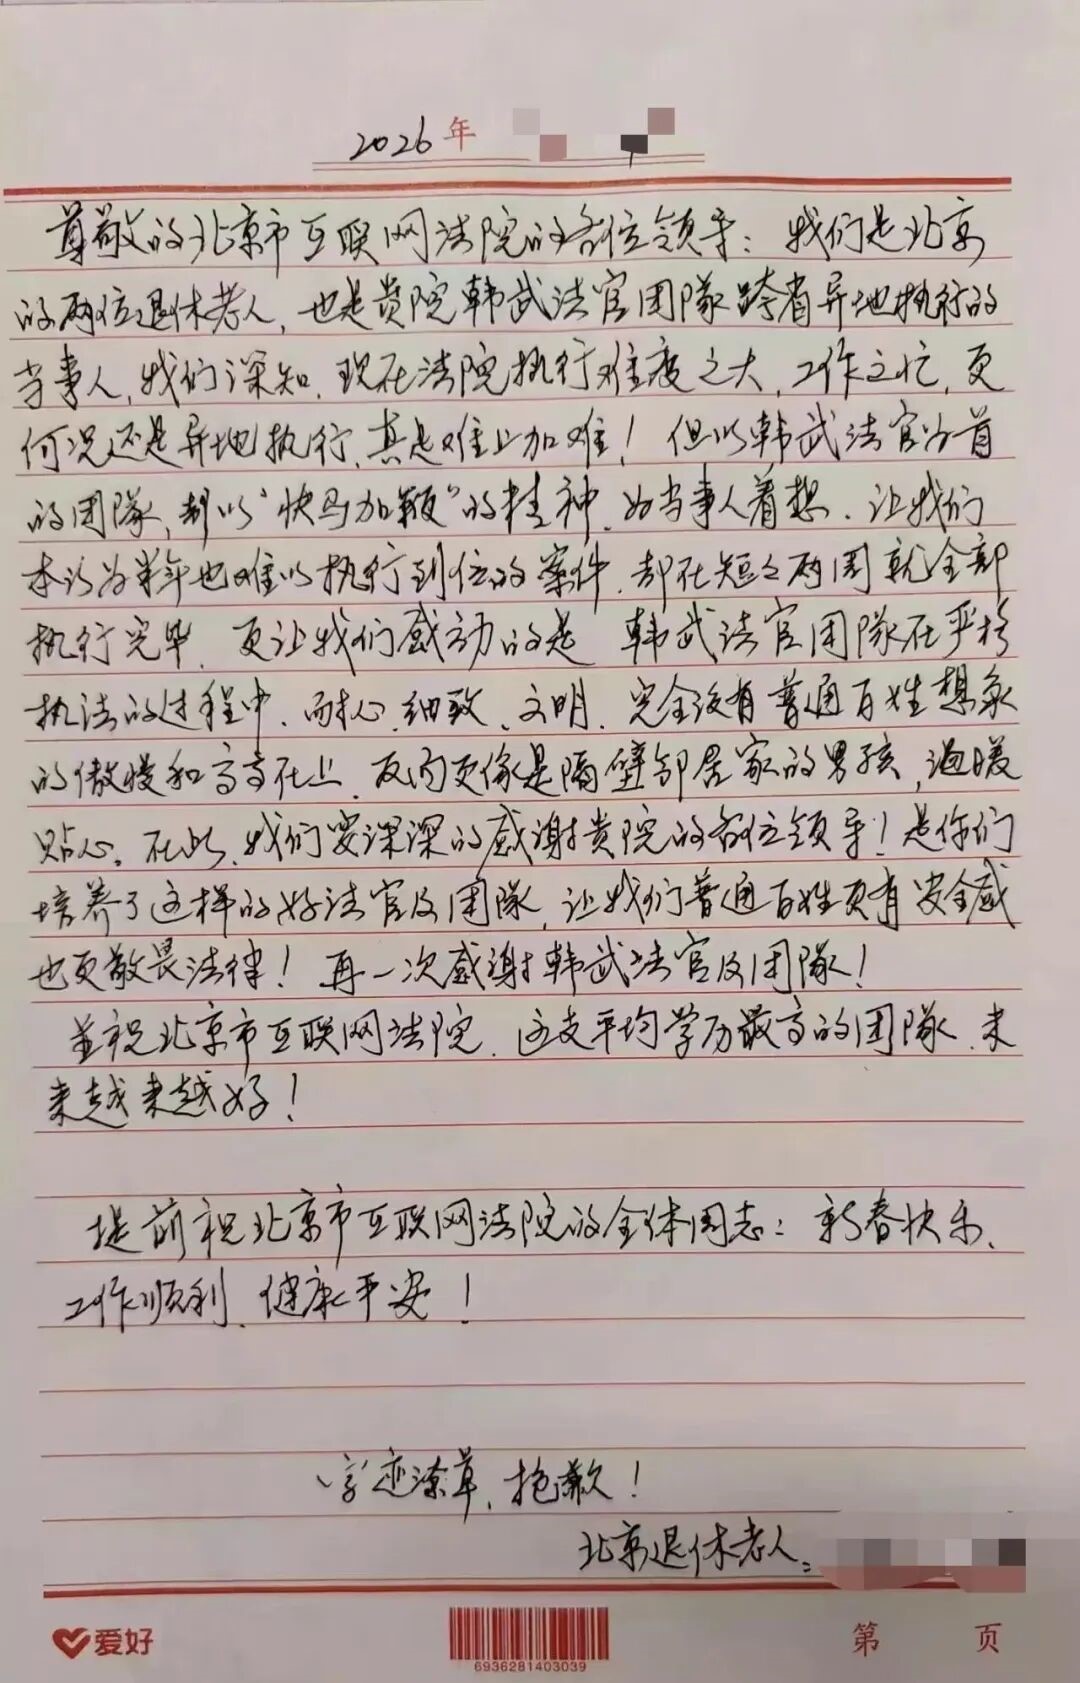 2026年
尊敬的北京市互联网法院的各位领导：我们是北京
的两位退休老人，也是贵院韩武法官团队跨省异地执行的
当事人，我们深知，现在法院执行难度之大，工作之忙，更
何况还是异地执行，真是难上加难！但以韩武法官为首
的团队，却以“快马加鞭”的精神，为当事人着想，让我们
本以为半年也难以执行到位的案件，却在短短两周就全部
执行完毕，更让我们感动的是 韩武法官团队在严格
执法的过程中，而心、细致、文明，完全没有普通百姓想象
的傲慢和高高在上，反而更像是隔壁邻居家的男孩，温暖
贴心。在此，我们要深深的感谢贵院的各位领导！是你们
培养了这样的好法官及团队，让我们普通百姓更有安全感
也更敬畏法律！再一次感谢韩武法官及团队！
并祝北京市互联网法院，这支平均学历最高的团队，未
来越来越好！
提前祝北京市互联网法院的全体同志：新春快乐、
工作顺利、健康平安！
字迹潦草，抱歉！
北京退休老人：
爱好
6936281403039
第 页